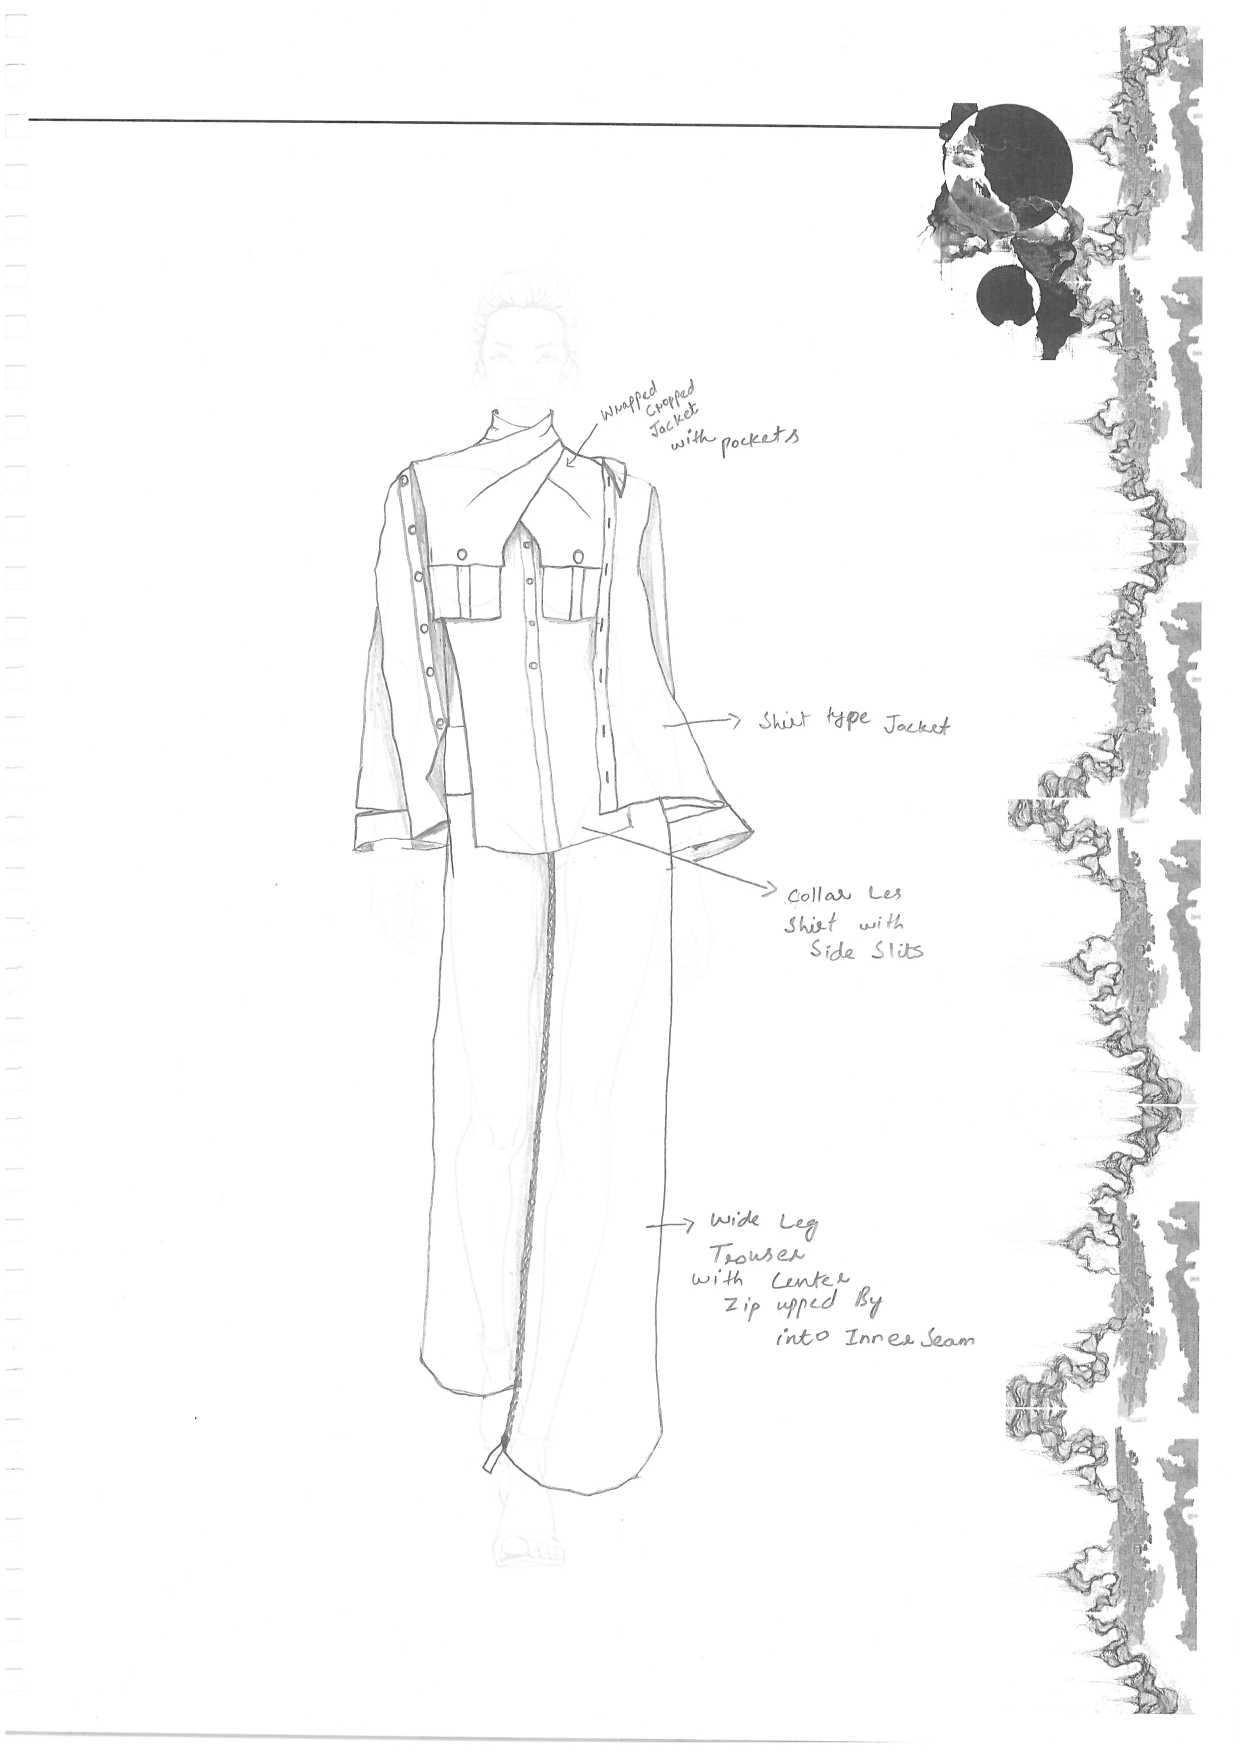 Wrapped
Cropped
Jacket
with pockets
Shirt type Jacket
Collar Les
Shirt with
Side Slits
Wide Leg
Trouser
with Center
Zip upped By
into Inner Seam